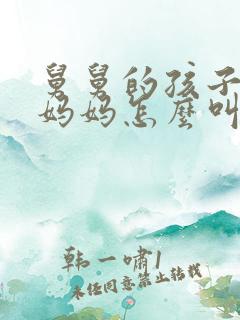 舅舅的孩子
妈妈怎麼叫
韩一嘯1
未经同意禁止转载